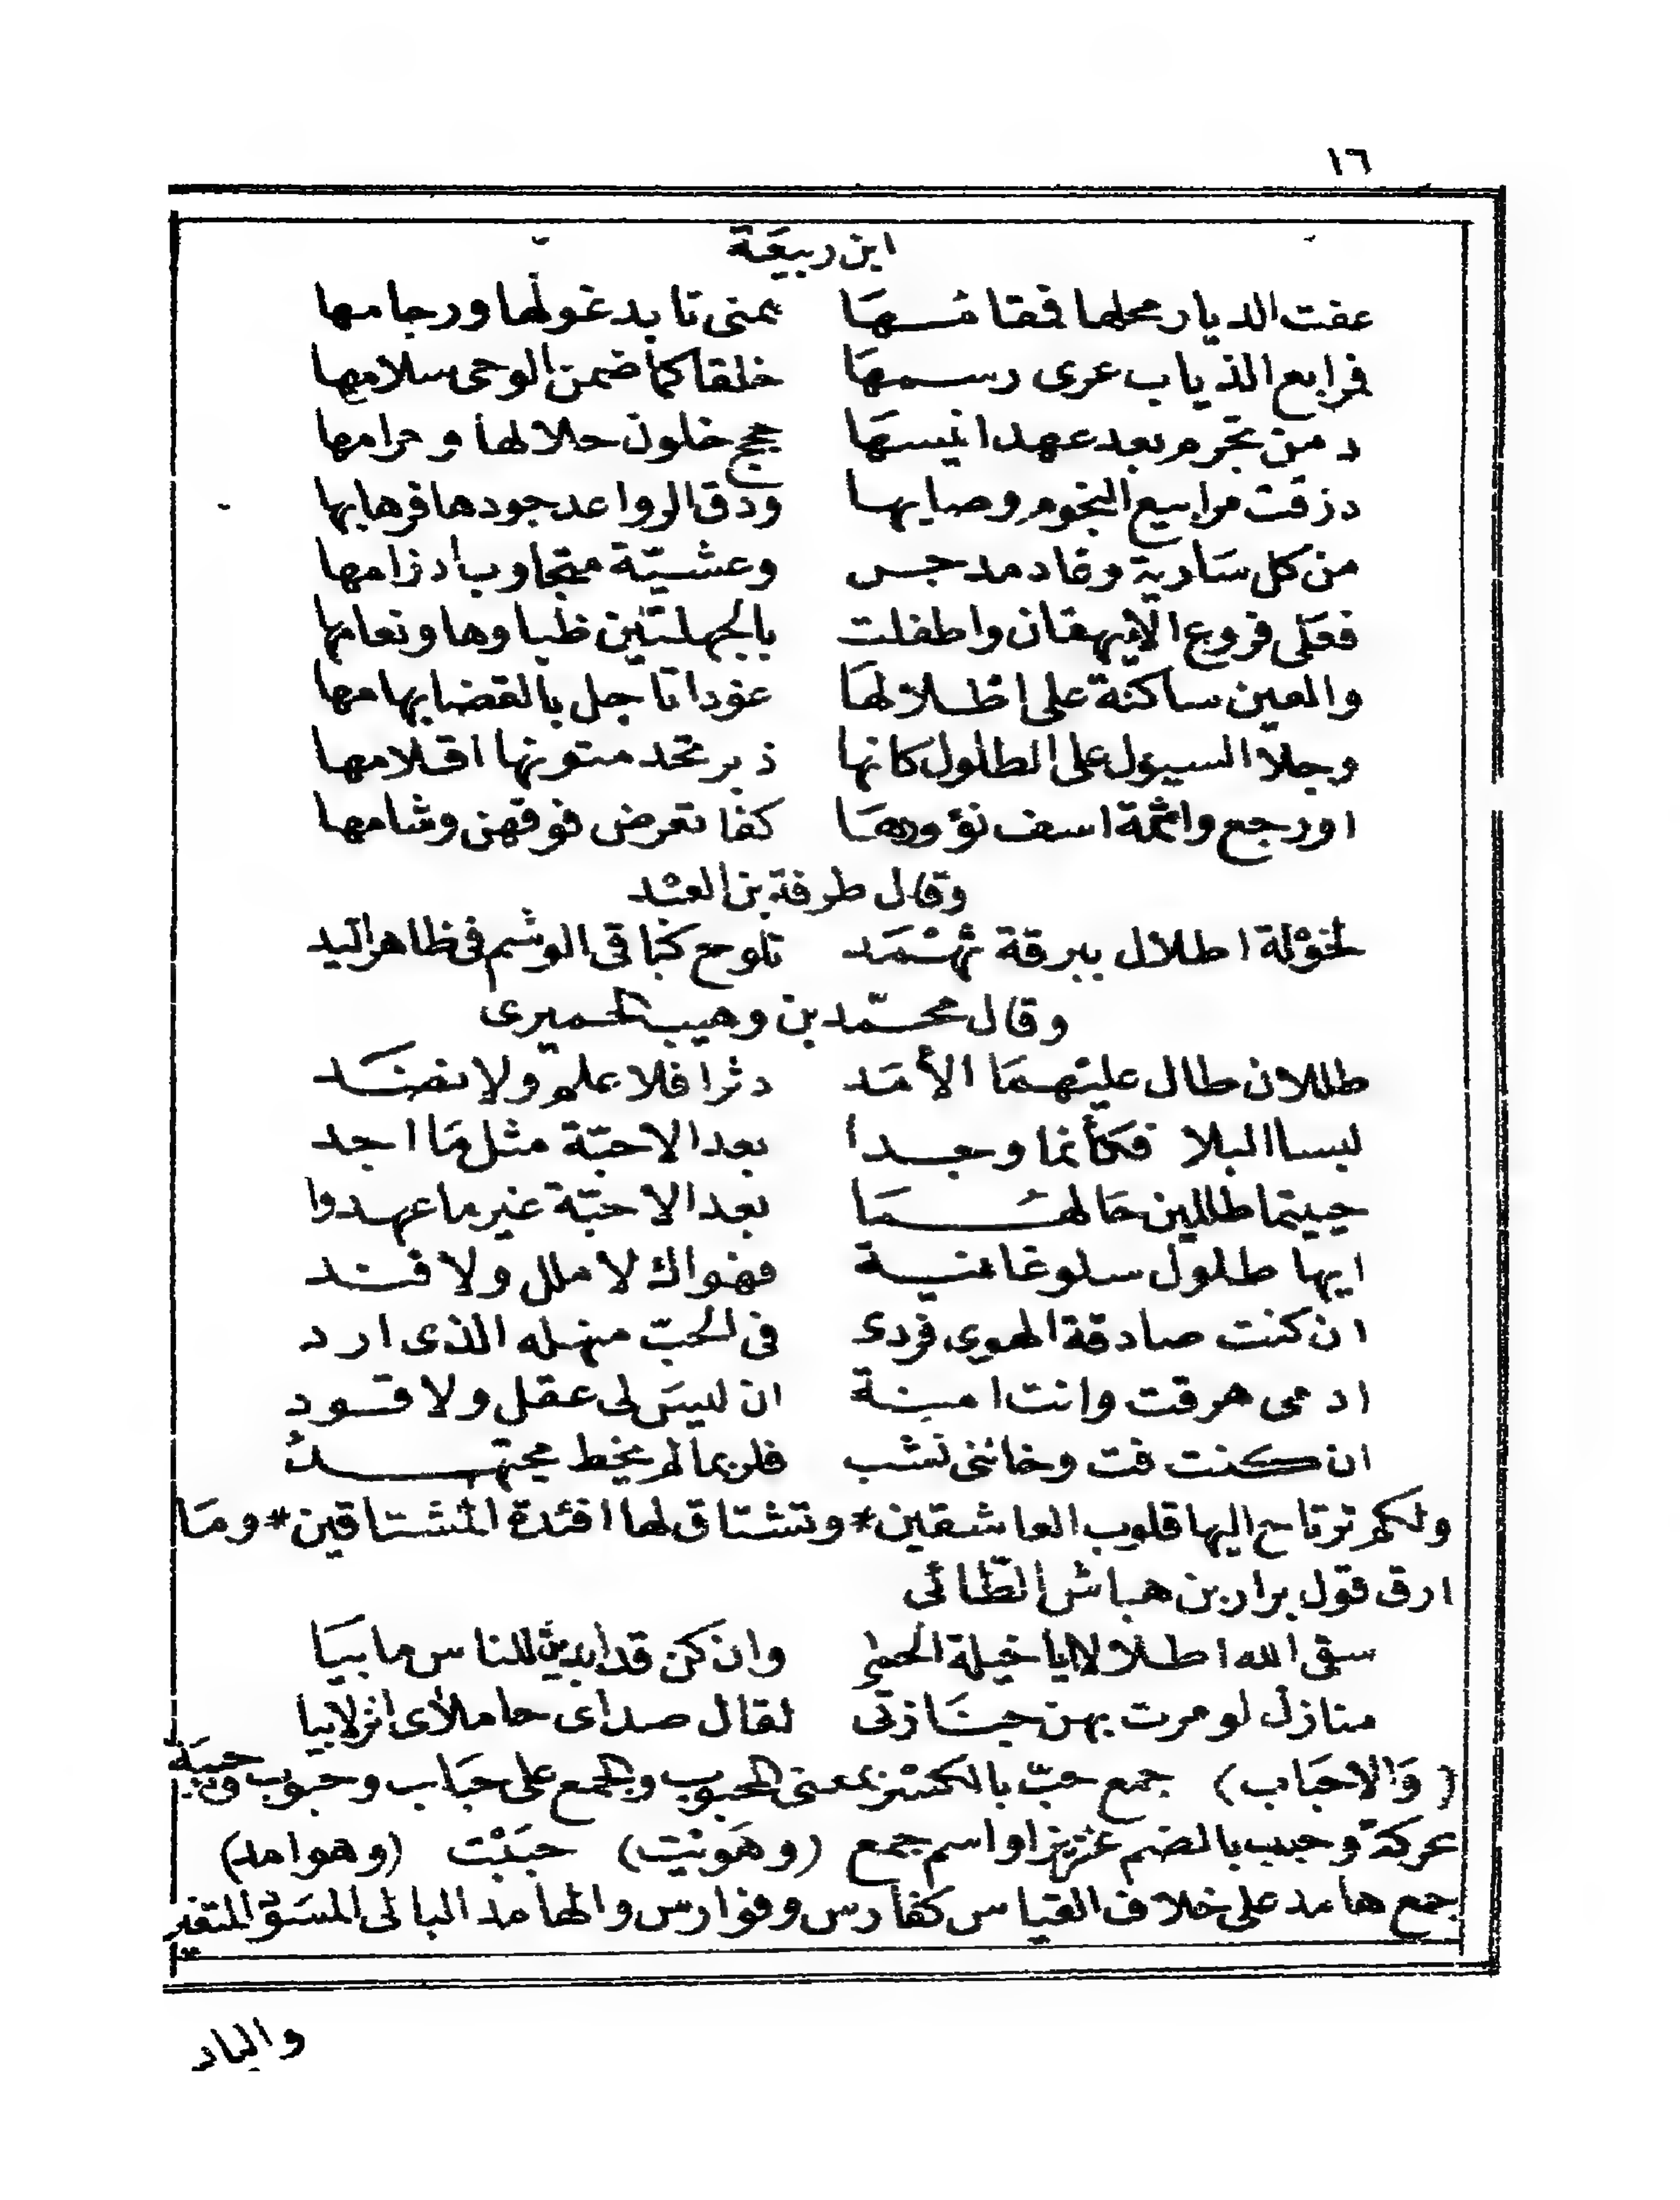 ١٦
ابن ربيعَة
عفت الديار محلها فمقامُهَا بمنى تابد غولها ورجامها
فرابع الذياب عرى رسمهَا خلقا كما ضمن الوحى سلامها
دمن تجرم بعد عهد انيسهَا حجج خلون حلالها وحرامها
دزقت مرابيع النجوم وصابها ودق الرواعد جودها فرهابها
من كل سَارية وغاد مدجس وعشيّة متجاوب ادزامها
فعَلى فروع الايهقان واطفلت بالجهلتين ظباوها ونعامها
والعين ساكنة على اظلالهَا عوذا تاجل بالقضا بهامها
وجلا السيول على الطلول كانها ذبر تحد متونها اقلامها
اورجع واشمة اسف نؤورهَا كففا تعرض فوقهن وشامها
وقال طرفة بن العبْد
لخوْلة اطلال ببرقة ثهْمَد تلوح كباقى الوشم فى ظاهر اليد
وقال محمّد بن وهيب الحميرى
طللان طال عليْهمَا الأمَد دثرا فلا علم ولا نضَد
لبسا البلا فكأنما وجدا بعد الاحبّة مثل مَا اجد
حييتما طللين حَالهُمَا بعد الاحبّة غير ما عهدوا
ايها طلول سلو غانية فهواك لا ملل ولا فند
ان كنت صادقة الهوى فردى فى الحبّ منهله الذى ارد
ادمى هرقت وانت امينة ان ليسَ لى عقل ولا قود
ان كنت فت وخاننى نشب فلربما لم يخط مجتهدُ
ولكم ترتاح اليها قلوب العاشقين * وتشتاق لها افئدة المشتاقين * ومَا
ارق قول براد بن هباش الطّائى
سقى الله اطلالا يا خيلة الحمى وان كن قد ابدين للناس ما بيَا
منازل لو مرت بهن جنَازتى لقال صداى حاملاى انزلا بيا
(وَالاحبَاب) جمع حبّ بالكسْر بمعنى المحبوب ويجمع على حبَاب وحبوب وحببَة
محركة وحبب بالضم عزيز او اسم جمع (وهَويْت) حببْت (وهوامد)
جمع هامد على خلاف القياس كفارس وفوارس والهامد البالى المسَوّد المتغير
والياد